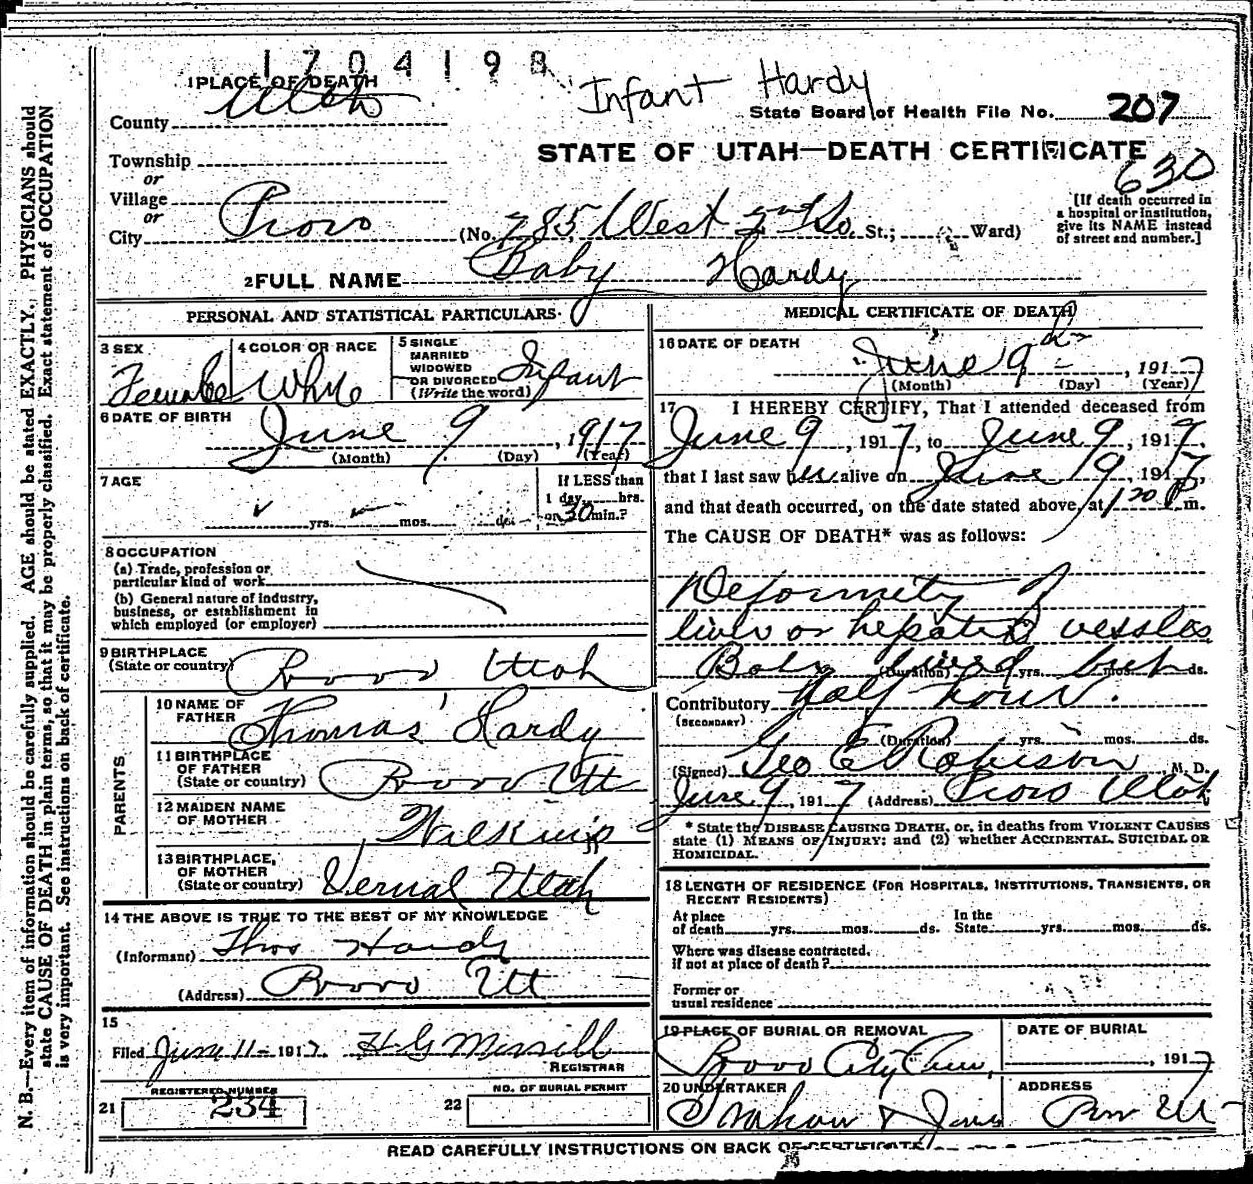 1704198
Infant Hardy
1 PLACE OF DEATH
County Utah
State Board of Health File No. 207
Township
or
Village
or
STATE OF UTAH—DEATH CERTIFICATE
630
[If death occurred in
a hospital or institution,
give its NAME instead
of street and number.]
City Provo (No. 785 West 2nd So. St.; Ward)
2 FULL NAME Baby Hardy
PERSONAL AND STATISTICAL PARTICULARS
3 SEX
Female
4 COLOR OR RACE
White
5 SINGLE
MARRIED
WIDOWED
OR DIVORCED
(Write the word)
Infant
6 DATE OF BIRTH
June 9, 1917
(Month) (Day) (Year)
7 AGE
yrs. mos. ds.
If LESS than
1 day hrs.
or 30 min.?
8 OCCUPATION
(a) Trade, profession or
particular kind of work
(b) General nature of industry,
business, or establishment in
which employed (or employer)
9 BIRTHPLACE
(State or country) Provo Utah
PARENTS
10 NAME OF
FATHER Thomas Hardy
11 BIRTHPLACE
OF FATHER
(State or country) Provo Ut
12 MAIDEN NAME
OF MOTHER
13 BIRTHPLACE
OF MOTHER
(State or country) Vernal Utah
14 THE ABOVE IS TRUE TO THE BEST OF MY KNOWLEDGE
(Informant) Thos Hardy
(Address) Provo Ut
15
Filed June 11- 1917. H G Merrill
REGISTRAR
REGISTERED NUMBER
21 234
NO. OF BURIAL PERMIT
22
MEDICAL CERTIFICATE OF DEATH
16 DATE OF DEATH
June 9th, 1917
(Month) (Day) (Year)
17 I HEREBY CERTIFY, That I attended deceased from
June 9, 1917, to June 9, 1917,
that I last saw her alive on June 9, 1917,
and that death occurred, on the date stated above, at 1 20 P m.
The CAUSE OF DEATH* was as follows:
Deformity of
liver or hepatic vessles
Baby lived but
(Duration) yrs. mos. ds.
Contributory half hour.
(SECONDARY)
(Duration) yrs. mos. ds.
(Signed) Geo E Robison M. D.
June 9, 1917 (Address) Provo Utah
* State the DISEASE CAUSING DEATH, or, in deaths from VIOLENT CAUSES
state (1) MEANS OF INJURY; and (2) whether ACCIDENTAL, SUICIDAL OR
HOMICIDAL.
18 LENGTH OF RESIDENCE (FOR HOSPITALS, INSTITUTIONS, TRANSIENTS, OR
RECENT RESIDENTS)
At place
of death yrs. mos. ds.
In the
State yrs. mos. ds.
Where was disease contracted,
if not at place of death?
Former or
usual residence
19 PLACE OF BURIAL OR REMOVAL
Provo City Cem,
DATE OF BURIAL
, 1917
20 UNDERTAKER
ADDRESS
READ CAREFULLY INSTRUCTIONS ON BACK OF CERTIFICATE
N. B.—Every item of information should be carefully supplied. AGE should be stated EXACTLY. PHYSICIANS should
state CAUSE OF DEATH in plain terms, so that it may be properly classified. Exact statement of OCCUPATION
is very important. See instructions on back of certificate.